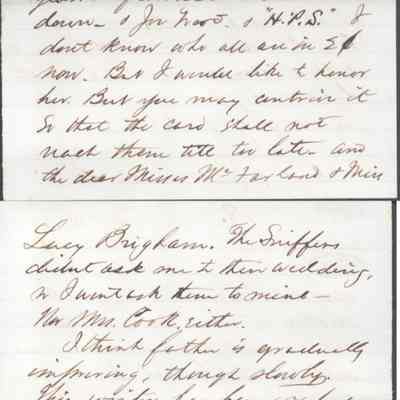 down - & Jon Wood. & "H.P.S." I
don't know who all are in E
now. But I would like to honor
her. But you may contrive it
so that the card shall not
reach them till too late - and
the dear Misses McFarland & Miss
Lucy Brigham. The Sniffens
didn't ask me to their wedding,
so I wont ask them to mine -
Nor Mrs. Cook, either.
I think father is gradually
improving, though slowly.
This winter